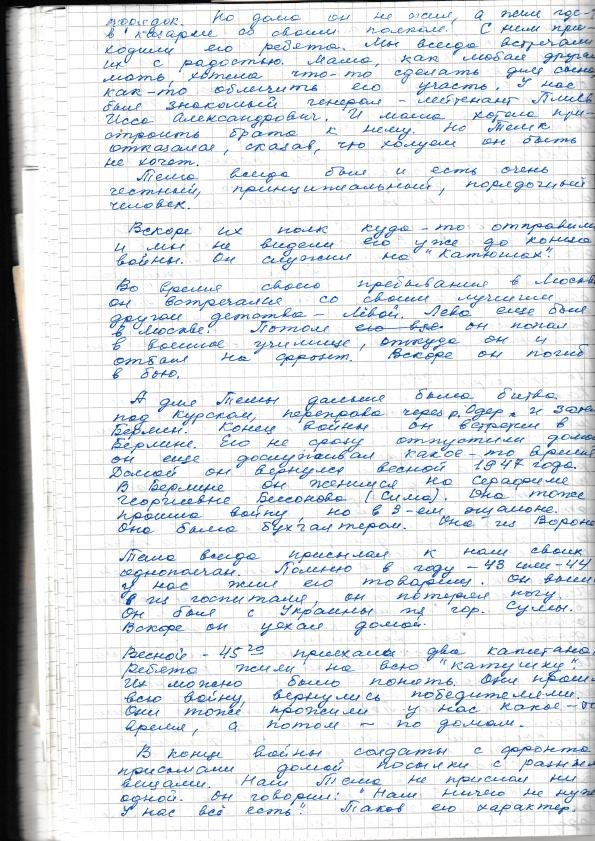 порядок. Но дома он не жил, а жил где-
в казарме со своим полком. С ним при-
ходили его ребята. Мы всегда встречали
их с радостью. Мама, как любая другая
мать, хотела что-то сделать для сына
как-то облегчить его участь. У нас
был знакомый генерал-лейтенант Плиев
Исса Александрович. И мама хотела при-
строить брата к нему. Но Темик
отказался, сказав, что холуем он быть
не хочет.
Тема всегда был и есть очень
честный, принципиальный, порядочный
человек.
Вскоре их полк куда-то отправили
и мы не видели его уже до конца
войны. Он служил на "Катюшах".
Во время своего пребывания в Москве
он встречался со своим лучшим
другом детства - Лёвой. Лева еще был
в Москве. Потом его все он попал
в военное училище, откуда он и
отбыл на фронт. Вскоре он погиб
в бою.
А для Темы дальше была битва
под Курском, переправа через р. Одер и
Берлин. Конец войны он встретил в
Берлине. Его не сразу отпустили домой
он еще дослуживал какое-то время
Домой он вернулся весной 1947 года.
В Берлине он женился на Серафиме
Георгиевне Бессоновой (Сима). Она тоже
прошла войну, но в 3-ем эшалоне.
Она была бухгалтером. Она из Вороне
Тема всегда присылал к нам своих
однополчан. Помню в году - 43 или -44
у нас жил его товарищ. Он вы
в из госпиталя, он потерял ногу.
Он был с Украины из гор. Сумы.
Вскоре он уехал домой.
Весной - 45го приехали два капитана.
Ребята жили на всю "катушку".
Их можно было понять. Они прошли
всю войну, вернулись победителями.
Они тоже прожили у нас какое-то
время, а потом - по домам.
В конце войны солдаты с фронта
присылали домой посылки с разными
вещами. Наш Тема не прислал ни
одной. Он говорил: "Нам ничего не нужно
У нас всё есть". Таков его характер.